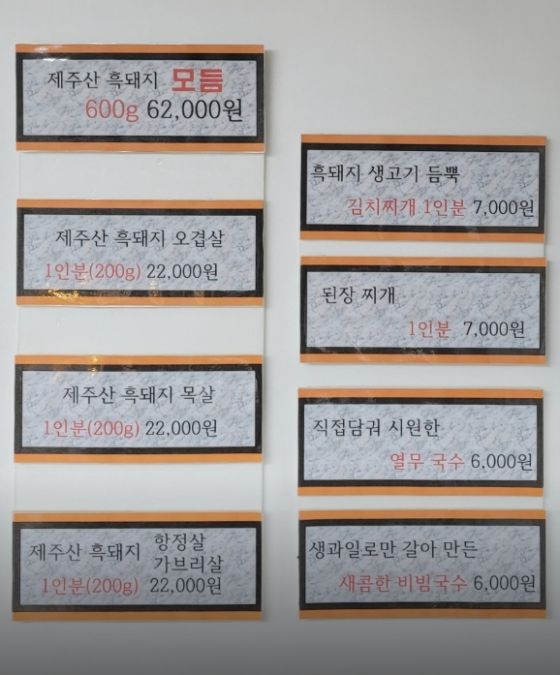 제주산 흑돼지 모듬
600g 62,000원
제주산 흑돼지 오겹살
1인분(200g) 22,000원
제주산 흑돼지 목살
1인분(200g) 22,000원
제주산 흑돼지 항정살
가브리살
1인분(200g) 22,000원
흑돼지 생고기 듬뿍
김치찌개 1인분 7,000원
된장 찌개
1인분 7,000원
직접담궈 시원한
열무 국수 6,000원
생과일로만 갈아 만든
새콤한 비빔국수 6,000원